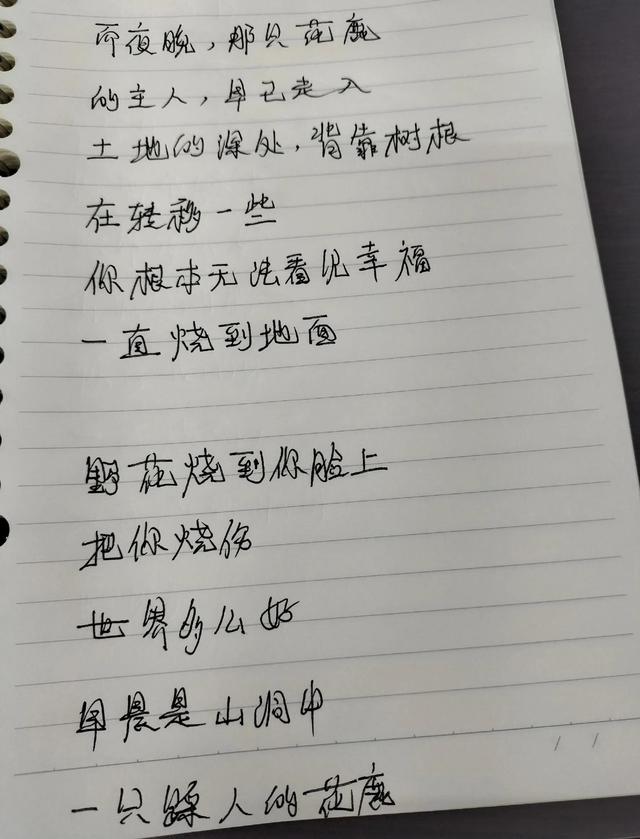 而夜晚，那只花鹿
的主人，早已走入
土地的深处，背靠树根
在转移一些
你根本无法看见幸福
一直烧到地面
野花烧到你脸上
把你烧伤
世界多么好
早晨是山洞中
一只踩人的花鹿